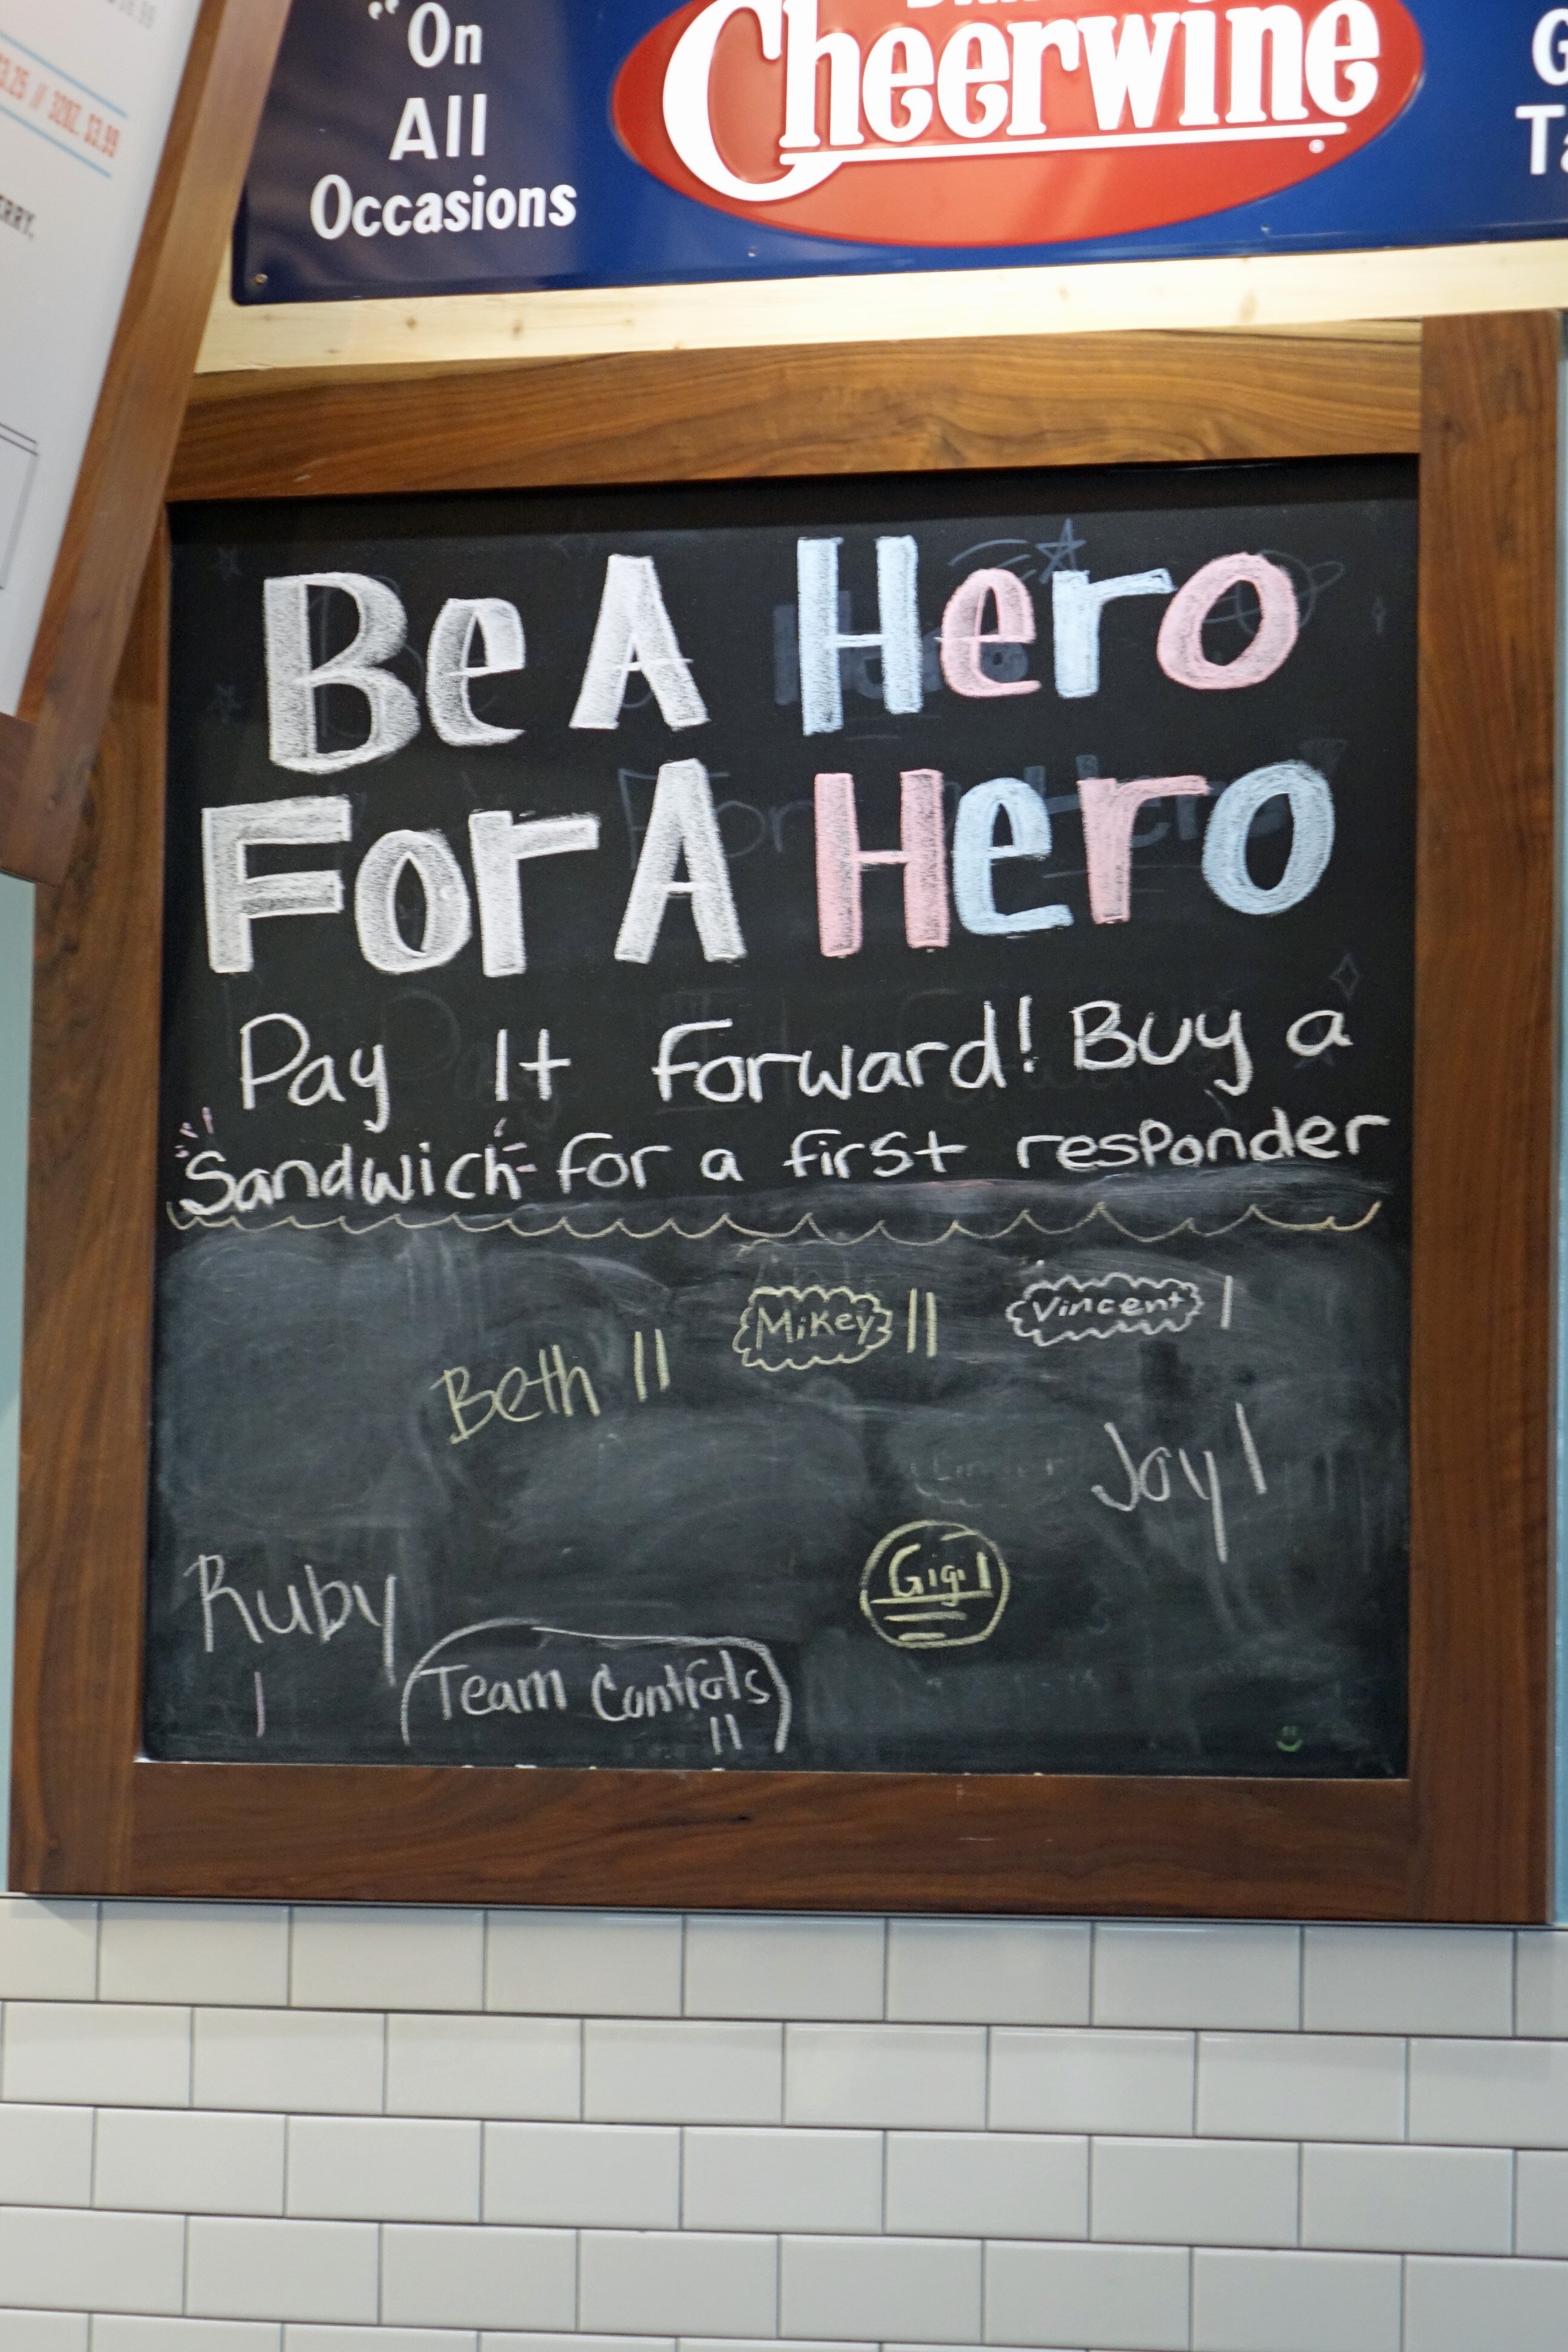 "On
All
Occasions
Cheerwine
3.25 // 32OZ. $3.99
Be A Hero
For A Hero
Pay It Forward! Buy a
Sandwich for a first responder
Beth ||
Mikey ||
Vincent |
Joy |
Gigi |
Ruby
|
Team Controls
||